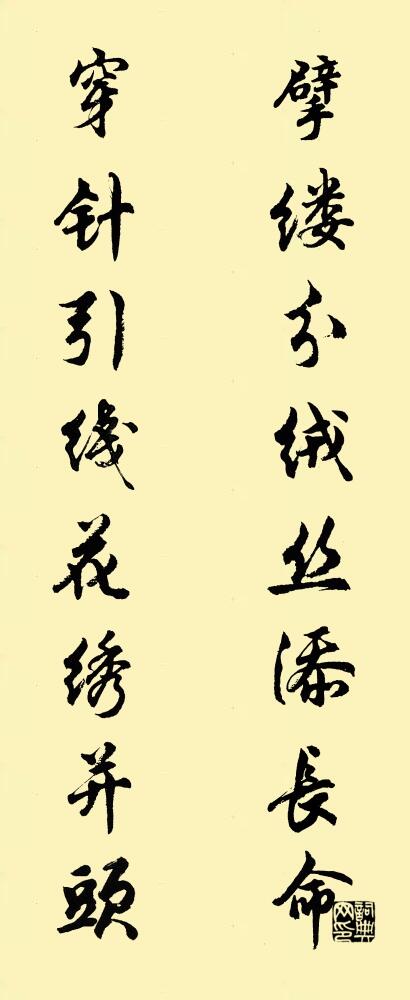 擘缕分绒丝添長命
穿针引线花绣并頭
詞典
网印